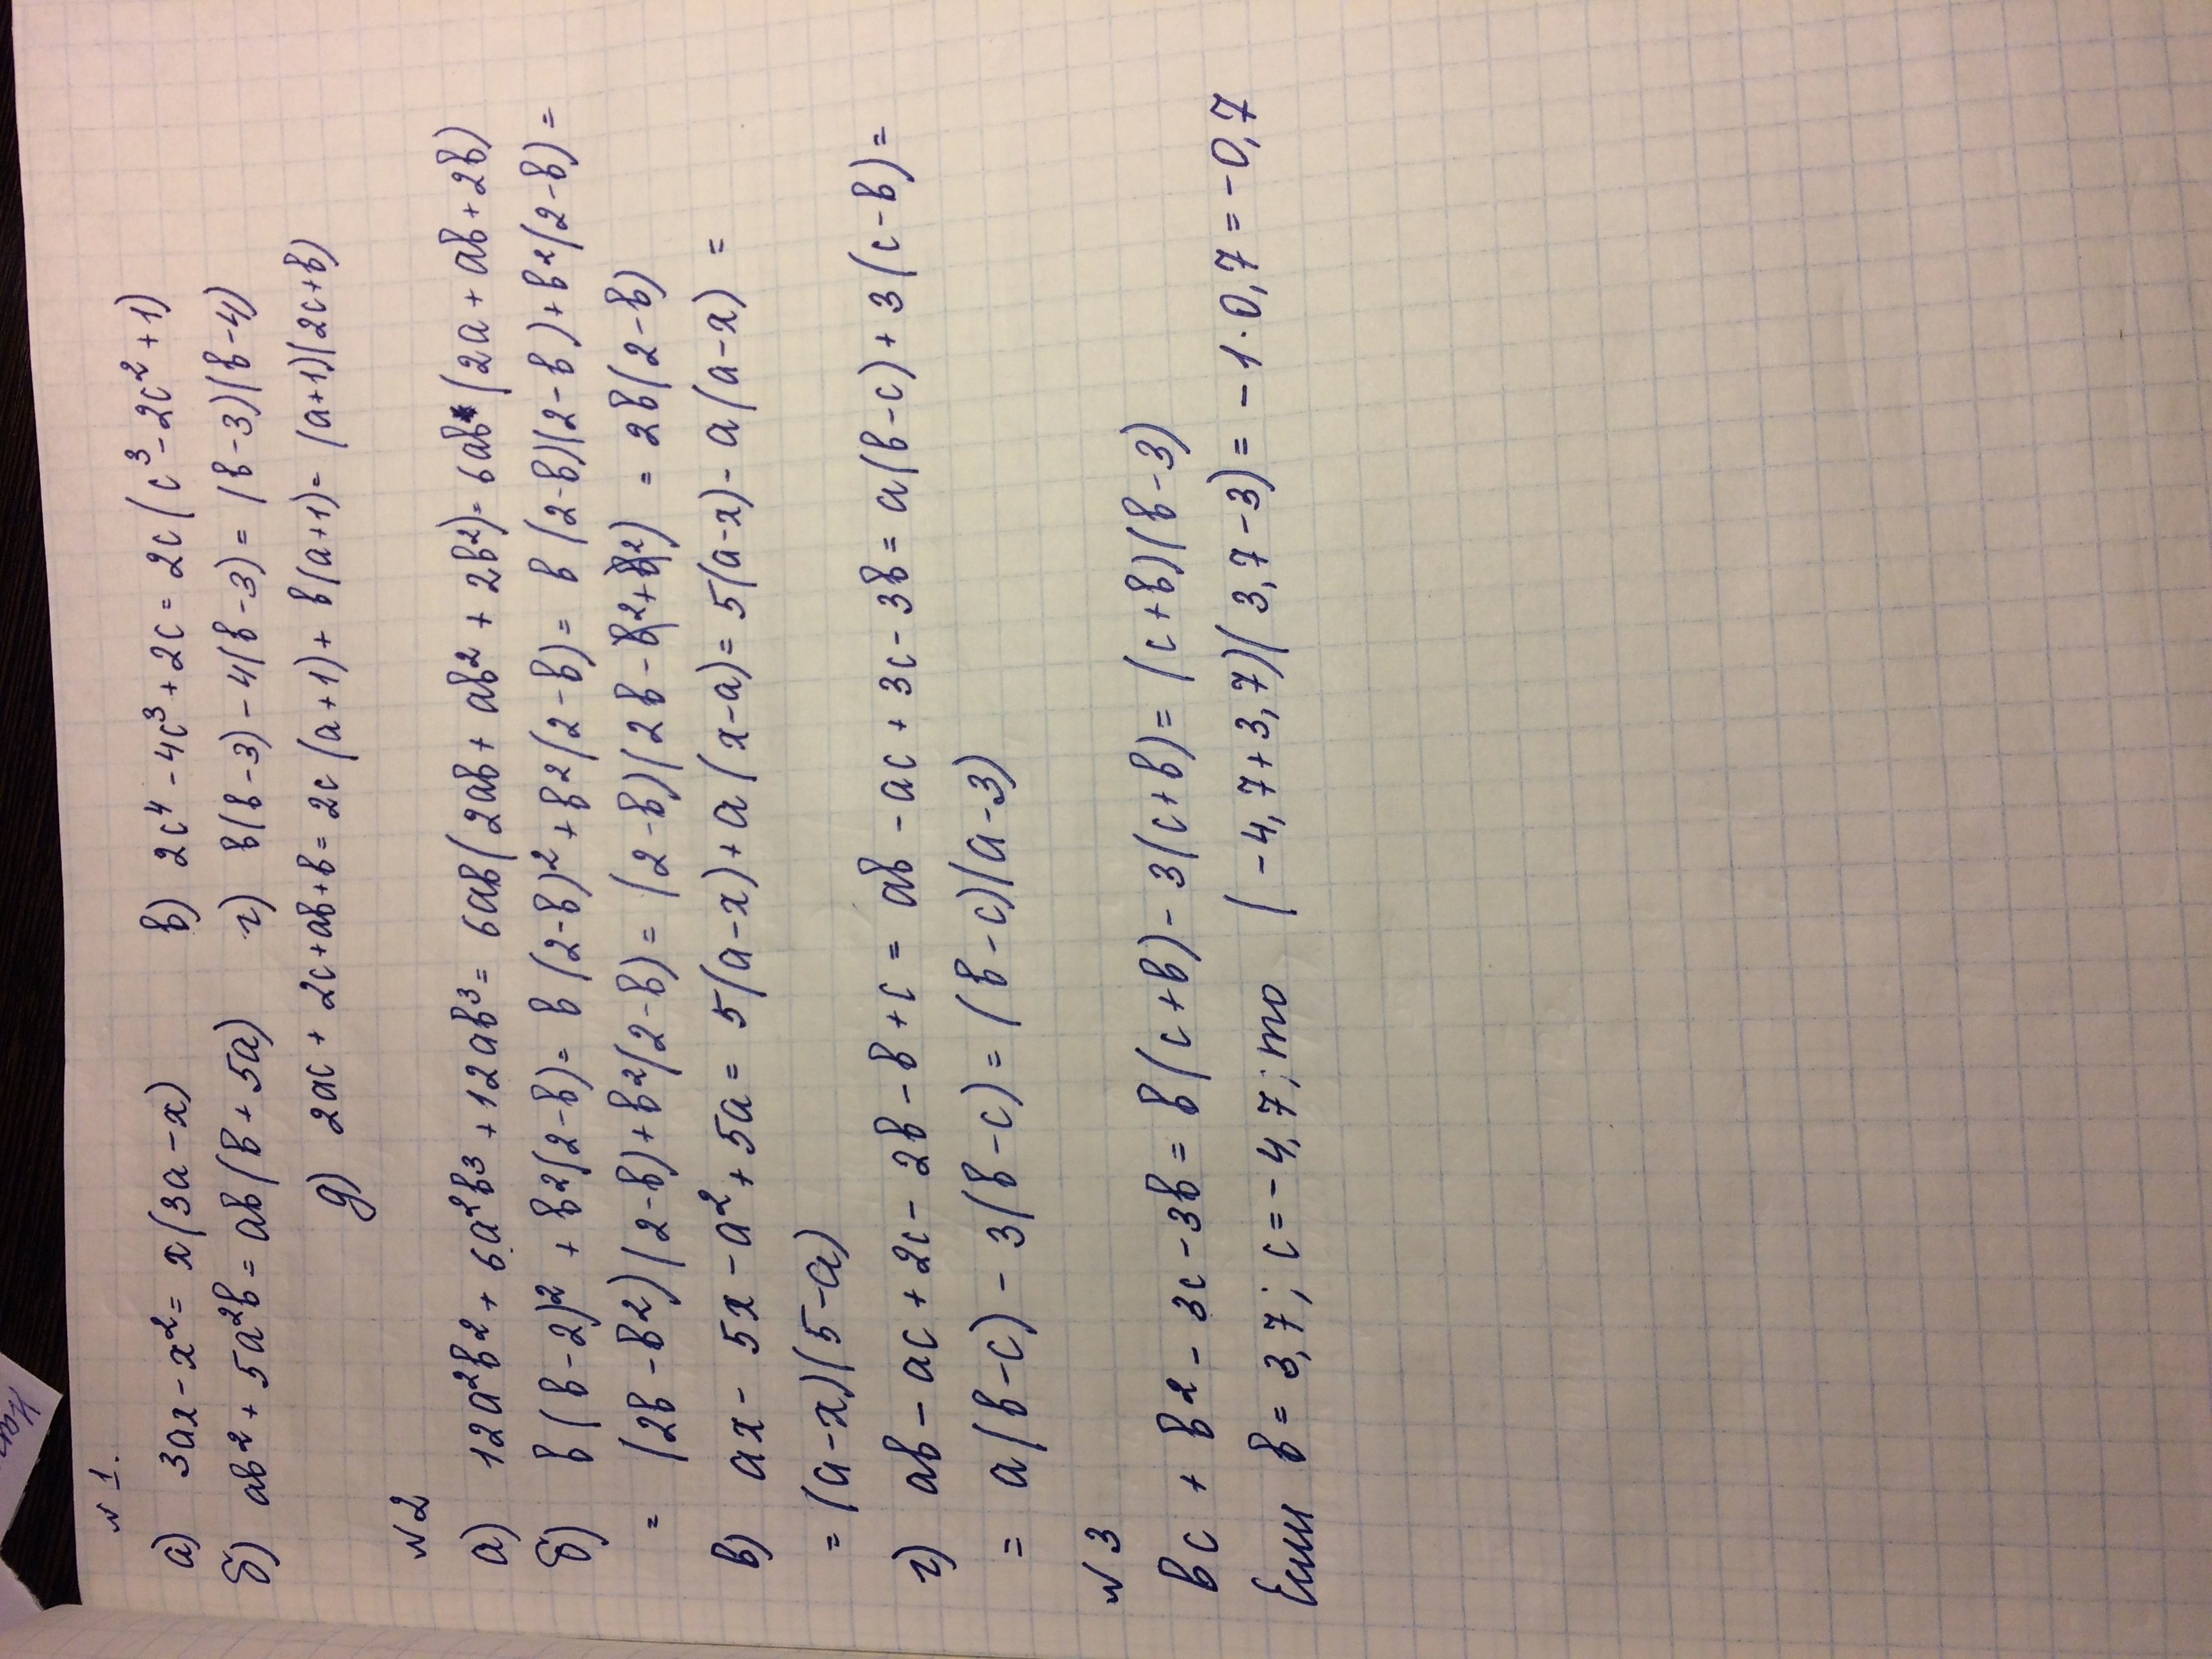 №1.
а) 3ax - x² = x(3a - x)   в) 2c⁴ - 4c³ + 2c = 2c(c³ - 2c² + 1)
б) ab² + 5a²b = ab(b + 5a)   г) b(b - 3) - 4(b - 3) = (b - 3)(b - 4)
д) 2ac + 2c + ab + b = 2c(a + 1) + b(a + 1) = (a + 1)(2c + b)
№2
а) 12a²b² + 6a²b³ + 12ab³ = 6ab(2ab + ab² + 2b²) = 6ab²(2a + ab + 2b)
б) b(b - 2)² + b²(2 - b) = b(2 - b)² + b²(2 - b) = b(2 - b)(2 - b) + b²(2 - b) =
= (2b - b²)(2 - b) + b²(2 - b) = (2 - b)(2b - b² + b²) = 2b(2 - b)
в) ax - 5x - a² + 5a = 5(a - x) + a(x - a) = 5(a - x) - a(a - x) =
= (a - x)(5 - a)
г) ab - ac + 2c - 2b - b + c = ab - ac + 3c - 3b = a(b - c) + 3(c - b) =
= a(b - c) - 3(b - c) = (b - c)(a - 3)
№3
bc + b² - 3c - 3b = b(c + b) - 3(c + b) = (c + b)(b - 3)
Если b = 3,7; c = -4,7; то (-4,7 + 3,7)(3,7 - 3) = -1·0,7 = -0,7